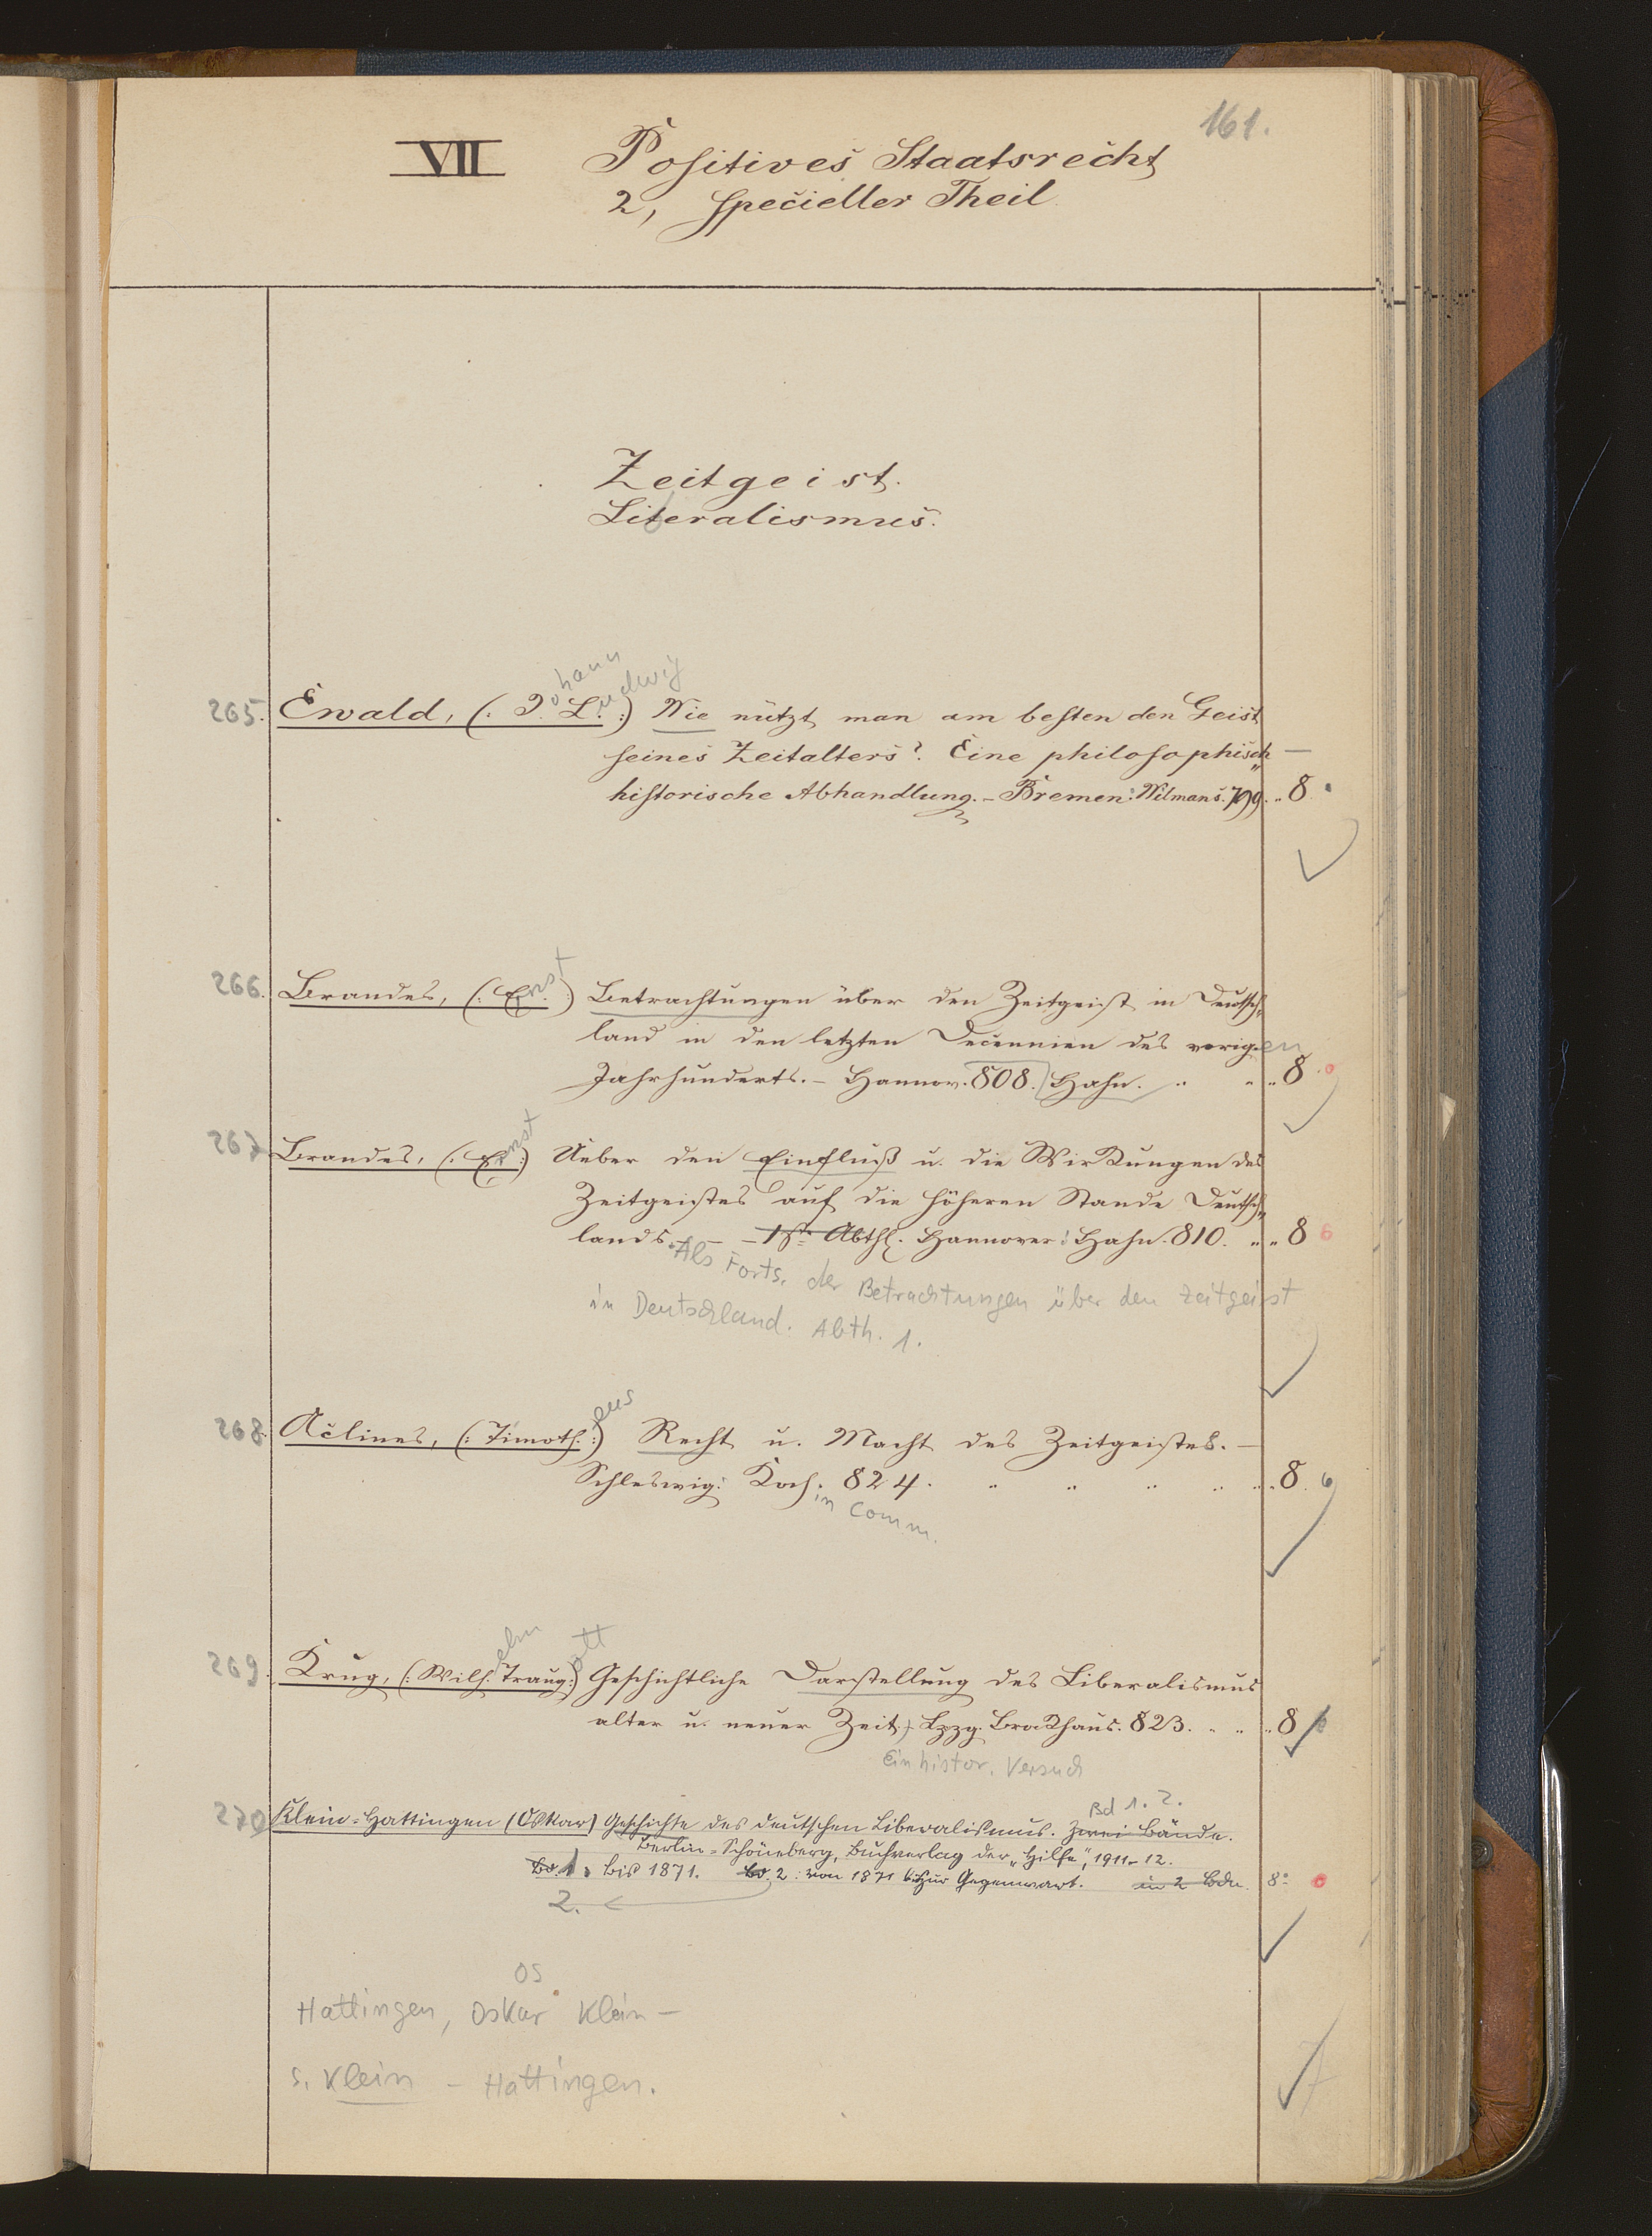 161.
VII Positives Staatsrecht
2, specieller Theil.
Zeitgeist.
Liberalismus.
265. Ewald, (: Johann Ludwig :) Wie nützt man am besten den Geist
seines Zeitalters? Eine philosophisch
historische Abhandlung. – Bremen: Wilmans. 799. 8
266. Brandes, (: Ernst :) Betrachtungen über den Zeitgeist in Deutsch„
land in den letzten Decennien des vorigen
Jahrhunderts. – Hannov. 808. Hahn. 8
267 Brandes, (: Ernst :) Ueber den Einfluß u. die Wirkungen des
Zeitgeistes auf die höheren Stande Deutsch„
lands. – 1ste Abthl. Hannover: Hahn. 810. 8
Als Forts. der Betrachtungen über den Zeitgeist
in Deutschland. Abth. 1.
268. Aclines, (: Timotheus :) Recht u. Macht des Zeitgeistes. –
Schleswig: Koch. 824. 8.
in Comm.
269. Krug, (: Wilhelm Traugott :) Geschichtliche Darstellung des Liberalismus
alter u. neuer Zeit. Lpzg. Brockhaus. 823. 8
Ein histor. Versuch
Bd 1. 2.
270 Klein-Hattingen (Oskar) Geschichte des deutschen Liberalismus. Zwei Bände.
Berlin-Schöneberg, Buchverlag der „Hilfe", 1911-12.
Bd. 1: bis 1871. Bd. 2: von 1871 bis zur Gegenwart. in 2 Bdn. 8°
2.
os
Hattingen, Oskar Klein –
s. Klein – Hattingen.